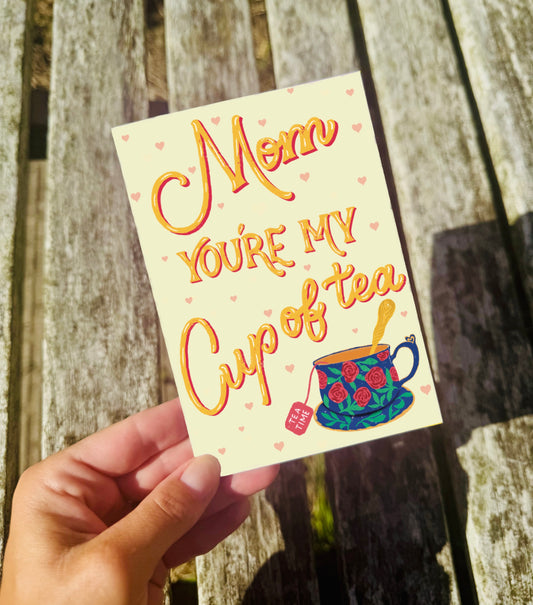 Mom
YOU'RE MY
Cup of tea
TEA
TIME